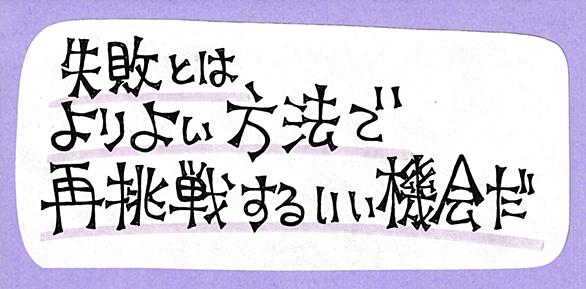 失敗とは、
よりよい方法で
再挑戦するいい機会だ